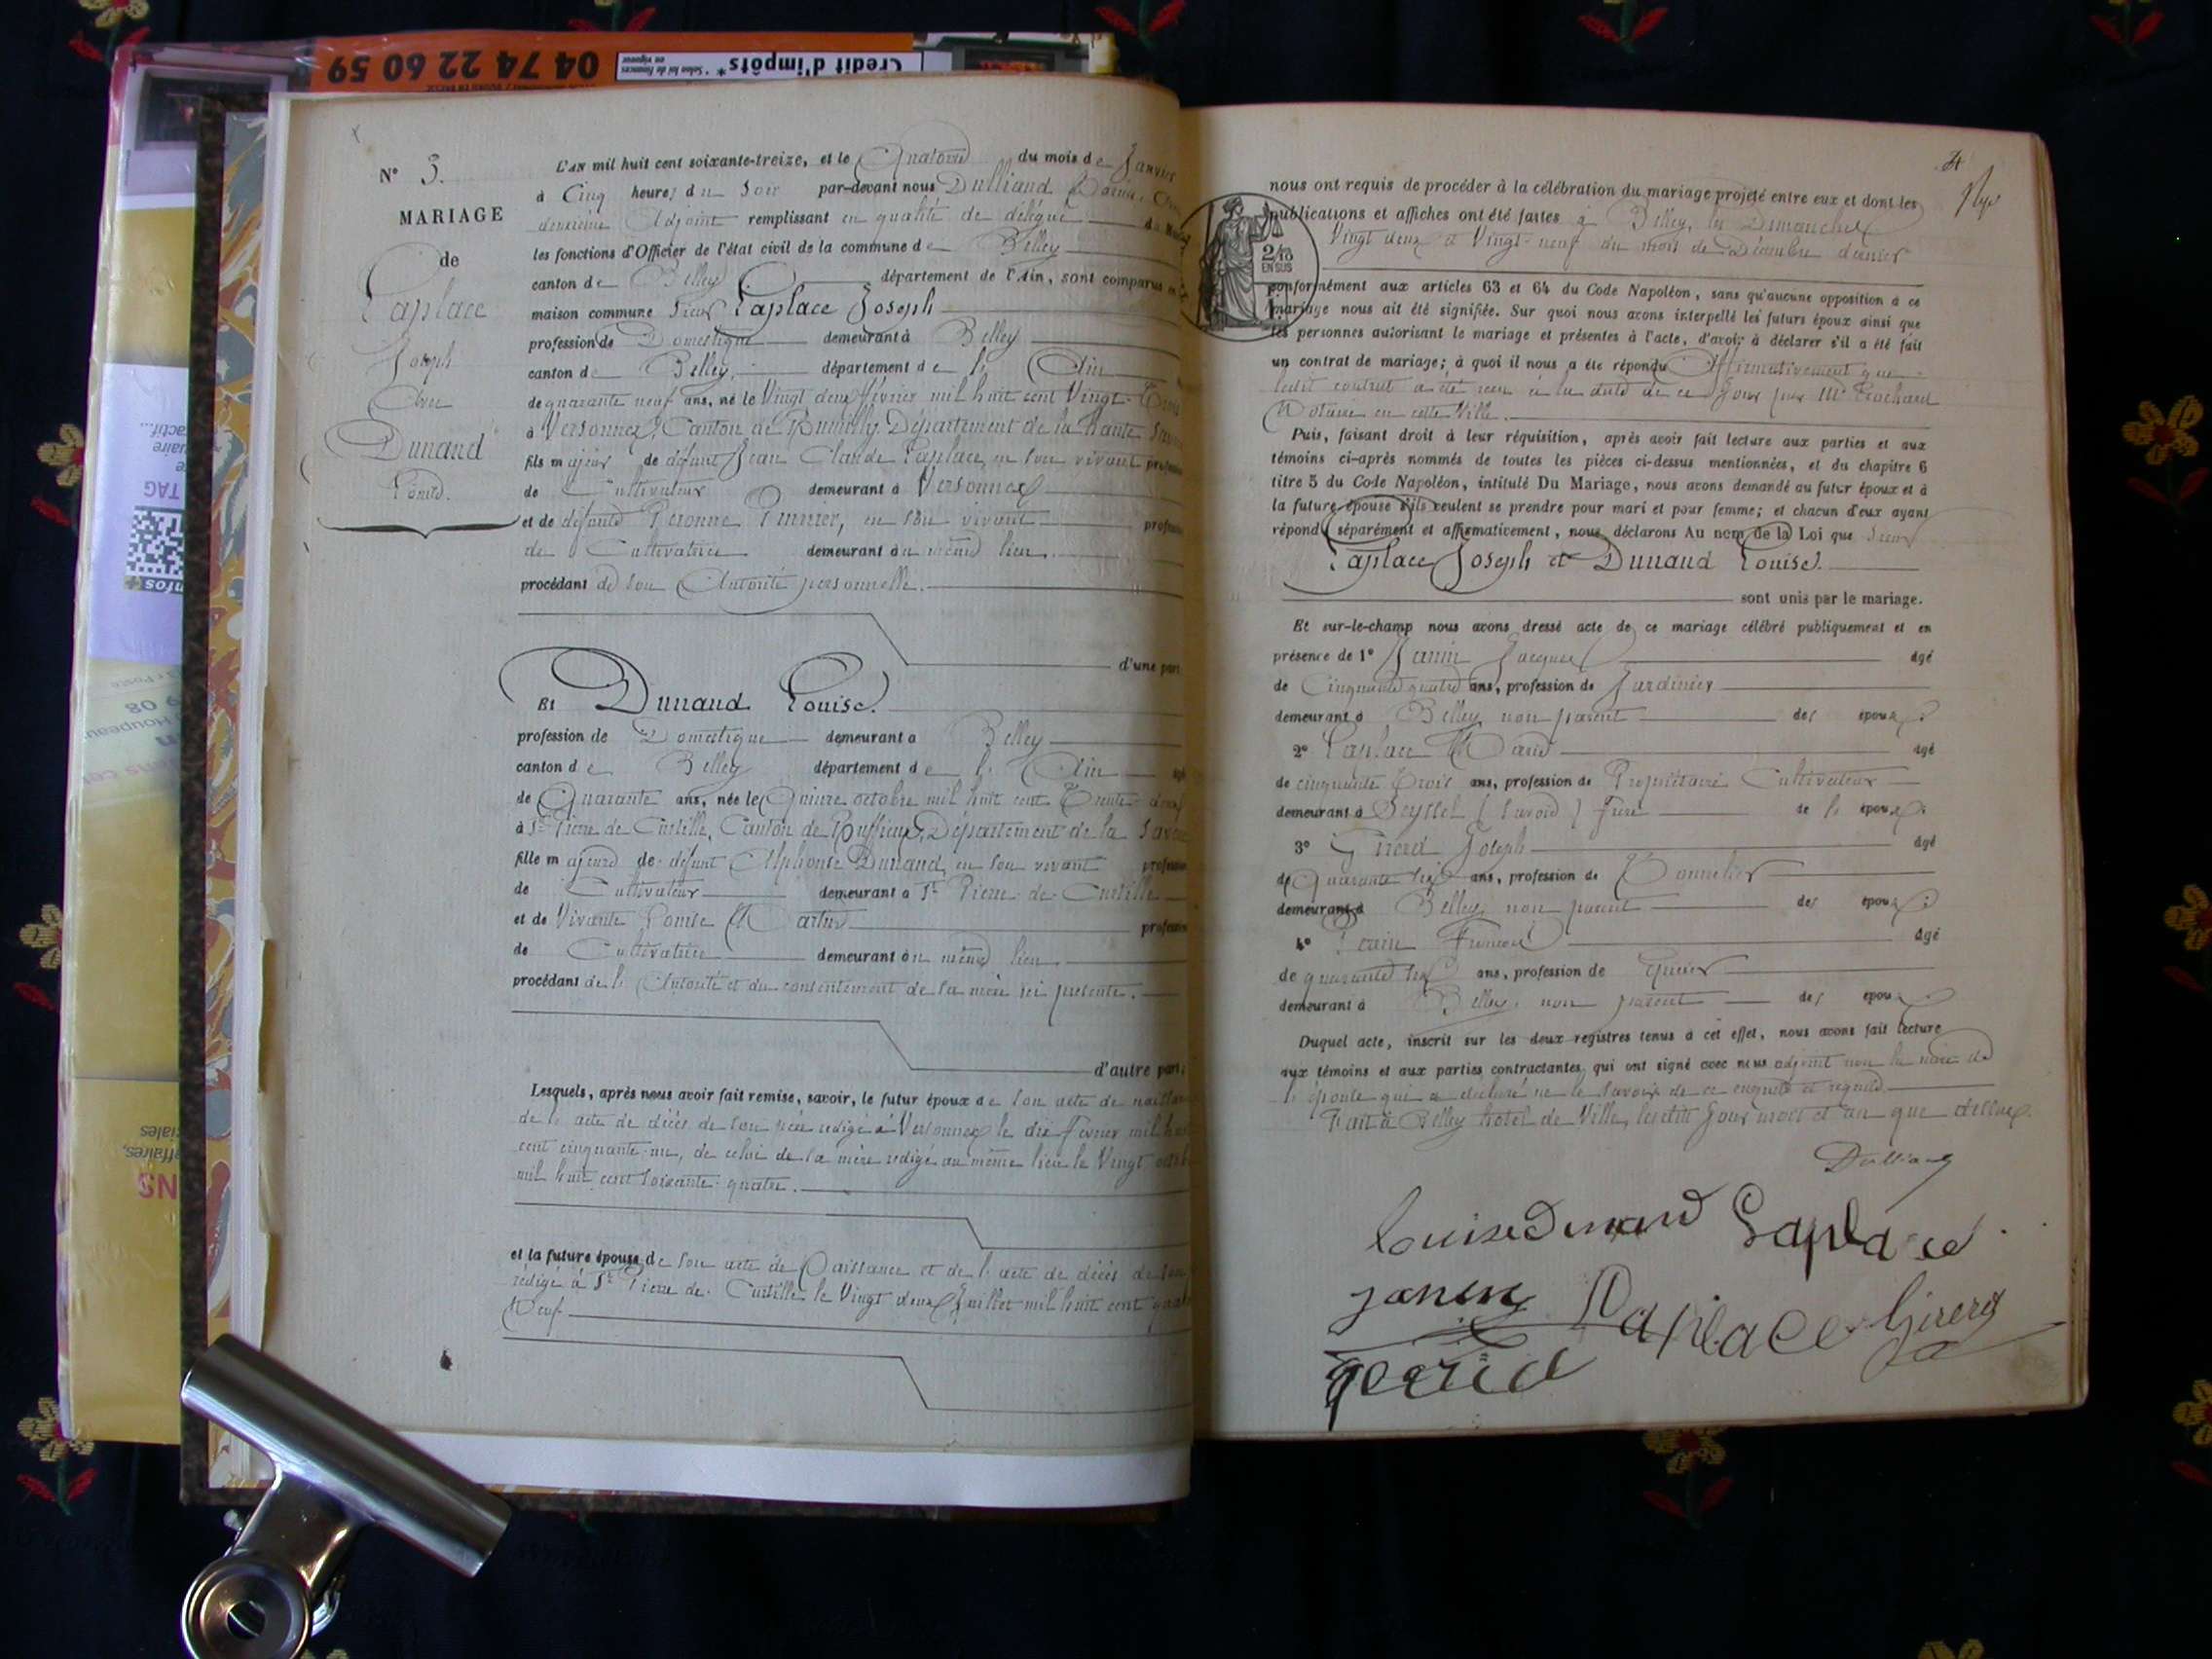 04 74 22 60 59
Crédit d'impôts*
* Selon loi de finances
en vigueur
N° 3.
MARIAGE
de
Laplace
Joseph
Avec
Dunand
Louise.
L'AN mil huit cent soixante-treize, et le Quatorze du mois de Janvier
à Cinq heures du Soir par-devant nous Dulliand
deuxième Adjoint remplissant en qualité de délégué
les fonctions d'Officier de l'état civil de la commune de Belley
canton de Belley département de l'Ain, sont comparus
maison commune Sieur Laplace Joseph
profession de Domestique demeurant à Belley
canton de Belley, département de l' Ain
de quarante neuf ans, né le Vingt deux février mil huit cent Vingt-Trois
à Versonnex, Canton de Rumilly, Département de la Haute Savoie
fils majeur de défunt Jean Claude Laplace, en son vivant profession
de Cultivateur demeurant à Versonnex
et de défunte Peronne en son vivant profession
de Cultivatrice demeurant au même lieu.
procédant de son Autorité personnelle.
d'une part
Et Dunand Louise.
profession de Domestique demeurant à Belley
canton de Belley département de l' Ain
de Quarante ans, née le Quinze octobre mil huit cent Trente-deux
à St Pierre de Curtille, Canton de Ruffieux, Département de la Savoie
fille majeure de défunt Alphonse Dunand, en son vivant profession
de Cultivateur demeurant à St Pierre de Curtille
et de Vivante Louise Martin profession
de Cultivatrice demeurant au même lieu.
procédant de l' Autorité et du consentement de sa mère ici présente.
d'autre part;
Lesquels, après nous avoir fait remise, savoir, le futur époux de son acte de naissance
de l' acte de décès de son père rédigé à Versonnex le dix février mil huit
cent cinquante-un, de celui de sa mère rédigé au même lieu le Vingt
mil huit cent soixante-quatre.
et la future épouse de son acte de Naissance et de l' acte de décès de son
rédigé à St Pierre de Curtille le Vingt deux Juillet mil huit cent
Neuf
4
nous ont requis de procéder à la célébration du mariage projeté entre eux et dont les
publications et affiches ont été faites à Belley, les Dimanches
Vingt deux et Vingt-neuf du mois de Décembre dernier
2/10
EN SUS
conformément aux articles 63 et 64 du Code Napoléon, sans qu'aucune opposition à ce
mariage nous ait été signifiée. Sur quoi nous avons interpellé les futurs époux ainsi que
les personnes autorisant le mariage et présentes à l'acte, d'avoir à déclarer s'il a été fait
un contrat de mariage; à quoi il nous a été répondu Affirmativement que
ledit contrat a été reçu à la date de ce Jour par Me Trochard
Notaire en cette Ville.
Puis, faisant droit à leur réquisition, après avoir fait lecture aux parties et aux
témoins ci-après nommés de toutes les pièces ci-dessus mentionnées, et du chapitre 6
titre 5 du Code Napoléon, intitulé Du Mariage, nous avons demandé au futur époux et à
la future épouse s'ils veulent se prendre pour mari et pour femme; et chacun d'eux ayant
répondu séparément et affirmativement, nous déclarons Au nom de la Loi que Sieur
Laplace Joseph et Dunand Louise.
sont unis par le mariage.
Et sur-le-champ nous avons dressé acte de ce mariage célébré publiquement et en
présence de 1° Janin Jacques âgé
de Cinquante quatre ans, profession de Jardinier
demeurant à Belley, non parent des époux;
2° Laplace Marie âgé
de cinquante Trois ans, profession de Propriétaire Cultivateur
demeurant à Seyssel (Savoie) frère de l' époux;
3° Girerd Joseph âgé
de Quarante six ans, profession de Tonnelier
demeurant à Belley, non parent des époux;
4° âgé
de quarante six ans, profession de Epicier
demeurant à Belley, non parent des époux
Duquel acte, inscrit sur les deux registres tenus à cet effet, nous avons fait lecture
aux témoins et aux parties contractantes, qui ont signé avec nous adjoint non la mère de
l' épouse qui a déclaré ne le savoir de ce enquise et requise
Fait à Belley hotel de Ville, lesdits Jour mois et an que dessus.
Dulliand
Louise Dunand Laplace
janin Laplace Girerd